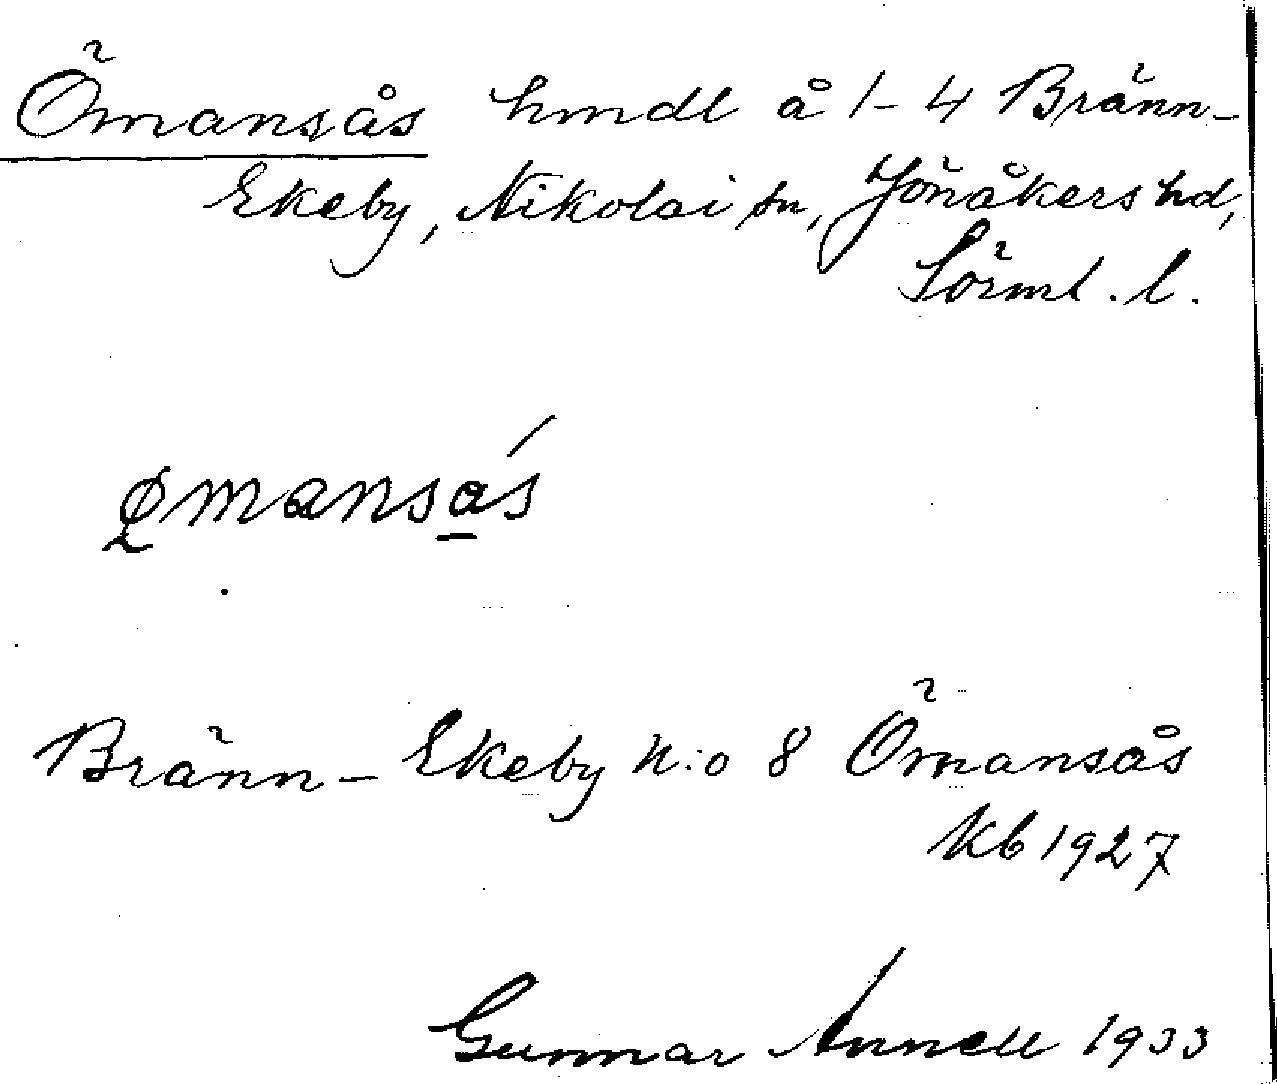 Ömansås hmdl å 1-4 Bränn-
Ekeby, Nikolai sn, Jönåkers hd,
Sörml. l.
ø̨mansa̲ś
Bränn-Ekeby N:o 8 Ömansås
Kb 1927
Gunnar Annell 1933